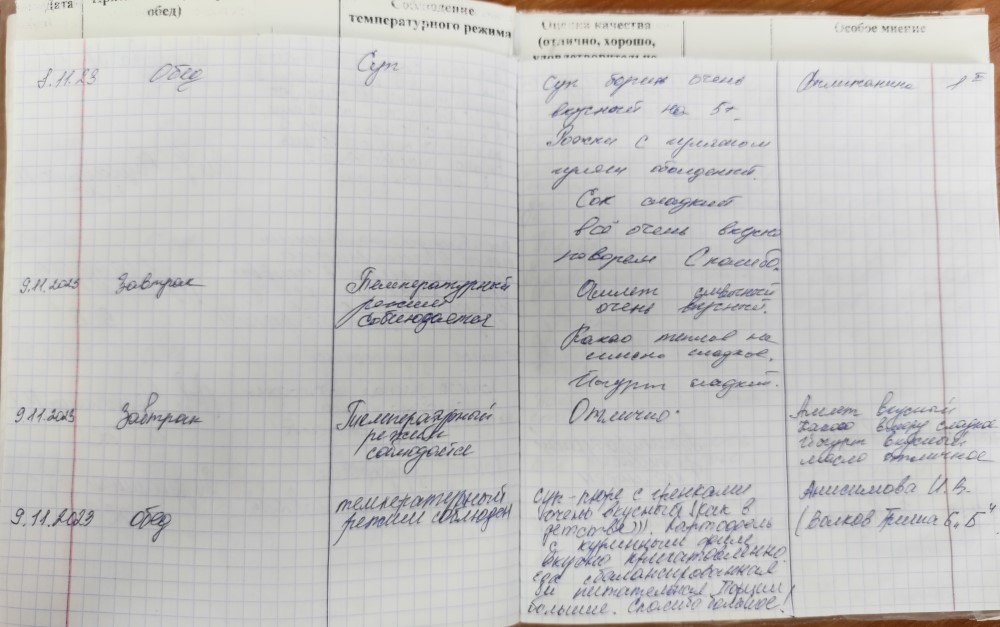 Дата
обед)
Соблюдение
температурного режима
Оценка качества
(отлично, хорошо,
удовлетворительно
Особое мнение
8.11.23 Обед Суп
Суп борщ очень
вкусный на 5+.
Рожки с гуляшом
Сок сладкий
Всё очень вкусно
поварам Спасибо.
1
9.11.2023 Завтрак Температурный
режим
соблюдается
Омлет сливочный
очень вкусный.
Какао
сладкое.
Йогурт сладкий.
9.11.2023 Завтрак Температурный
режим
соблюдается
Отлично.
Омлет вкусный
Какао сладкое
Йогурт вкусный
масло отличное
9.11.2023 обед температурный
режим соблюден
Суп-пюре с гренками
очень вкусный (как в
детстве))) Картофель
с куриным филе
вкусно приготовленно.
еда сбалансированная
и питательная. Порции
большие. Спасибо большое!
Анисимова И.В.
(Волков Гриша 6 „Б"